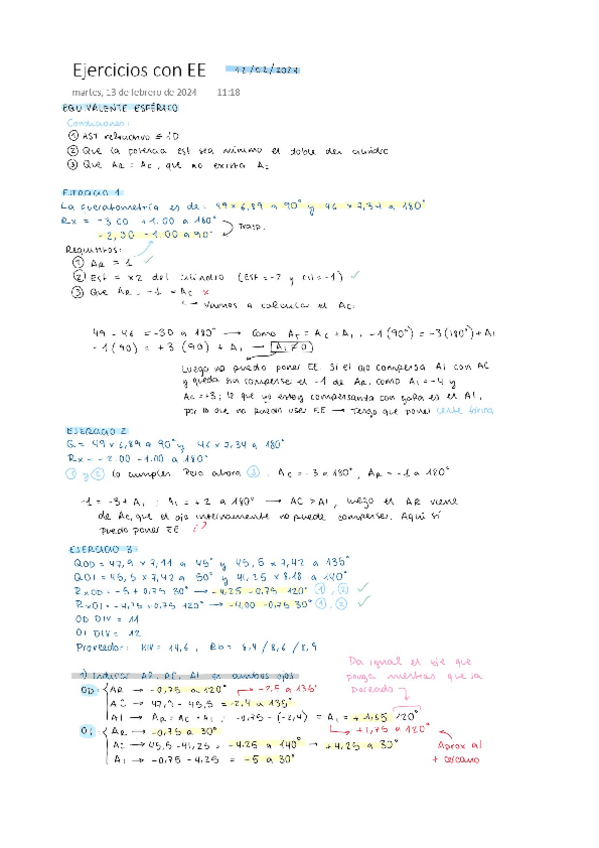 Ejercicios con EE 12/02/2024
martes, 13 de febrero de 2024 11:18
EQUIVALENTE ESFÉRICO
Condiciones:
① AST refractivo ≤ 1D
② Que la potencia est sea mínimo el doble del cilindro
③ Que AR = AC, que no exista Ai
EJERCICIO 1
La queratometría es de: 49 x 6,89 a 90° y 46 x 7,34 a 180°
Rx = -3.00 +1.00 a 180°
-2,00 -1.00 a 90° Trasp.
Requisitos:
① AR = 1 ✓
② Esf = x2 del cilindro (ESF=-2 y cil=-1) ✓
③ Que AR -1 = AC x
Vamos a calcular el AC:
49 - 46 = -3D a 180° → Como AR = AC + Ai, -1(90°) = -3(180°) + Ai
-1(90) = +3(90) + Ai → Ai ≠ 0
Luego no puedo poner EE. Si el ojo compensa Ai con AC
y queda sin compensar el -1 de AR, como Ai = -4 y
AC = +3; lo que yo estoy compensando con gafa es el Ai,
por lo que no puedo usar EE → Tengo que poner lente tórica
EJERCICIO 2
Q = 49 x 6,89 a 90° y 46 x 7.34 a 180°
Rx = -2.00 -1.00 a 180°
① y ② lo cumplen. Pero ahora ③. AC = -3 a 180°, AR = -1 a 180°
-1 = -3 + Ai ; Ai = +2 a 180° → AC > Ai, luego el AR viene
de AC, que el ojo internamente no puede compensar. Aquí sí
puedo poner EE ¿?
EJERCICIO 3
QOD = 47,9 x 7,11 a 45° y 45,5 x 7,42 a 135°
QOI = 45,5 x 7,42 a 50° y 41.25 x 8.18 a 140°
RxOD = -5 +0,75 30° → -4,25 -0,75 120° ①, ② ✓
RxOI = -4,75 +0.75 120° → -4,00 -0,75 30° ①, ② ✓
OD DIV = 11
OI DIV = 12
Proveedor: HIV = 14,6, R0 = 8,4 / 8,6 / 8,9
1) Indicar AR, AC, AI en ambos ojos
Da igual el eje que
ponga mientras que sea
pareado
OD: AR → -0,75 a 120° → -2,5 a 135°
AC → 47,9 - 45,5 = -2,4 a 135°
AI → AR = AC + Ai ; -0.75 - (-2,4) = Ai = +1,65 120°
→ +1,75 a 120°
OI: AR → -0,75 a 30°
AC → 45,5 - 41,25 = -4.25 a 140° → +4,25 a 30°
Ai → -0.75 - 4.25 = -5 a 30°
Aprox al
+ cercano